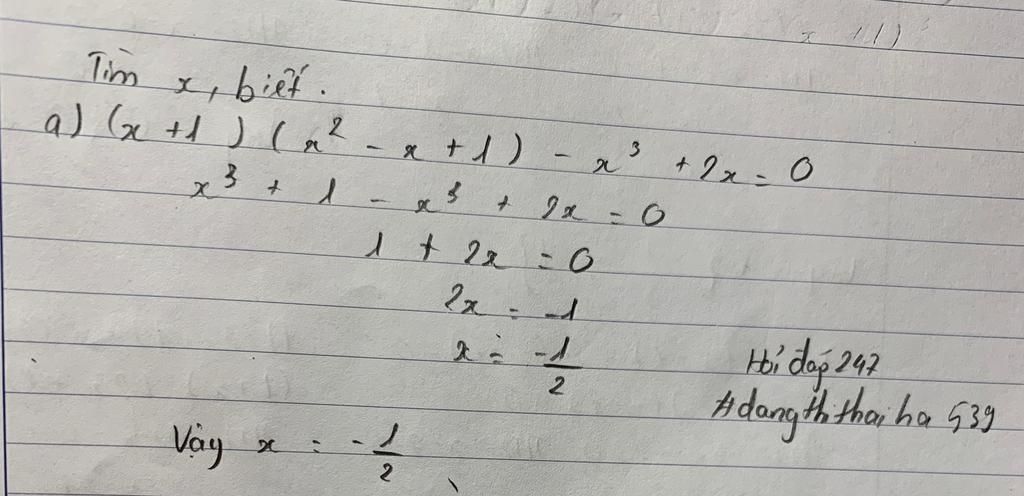 Tìm x, biết.
a) (x + 1) (x² - x + 1) - x³ + 2x = 0
x³ + 1 - x³ + 2x = 0
1 + 2x = 0
2x = -1
x = -1/2
Hỏi đáp 247
#dangthithaiha539
Vậy x = -1/2